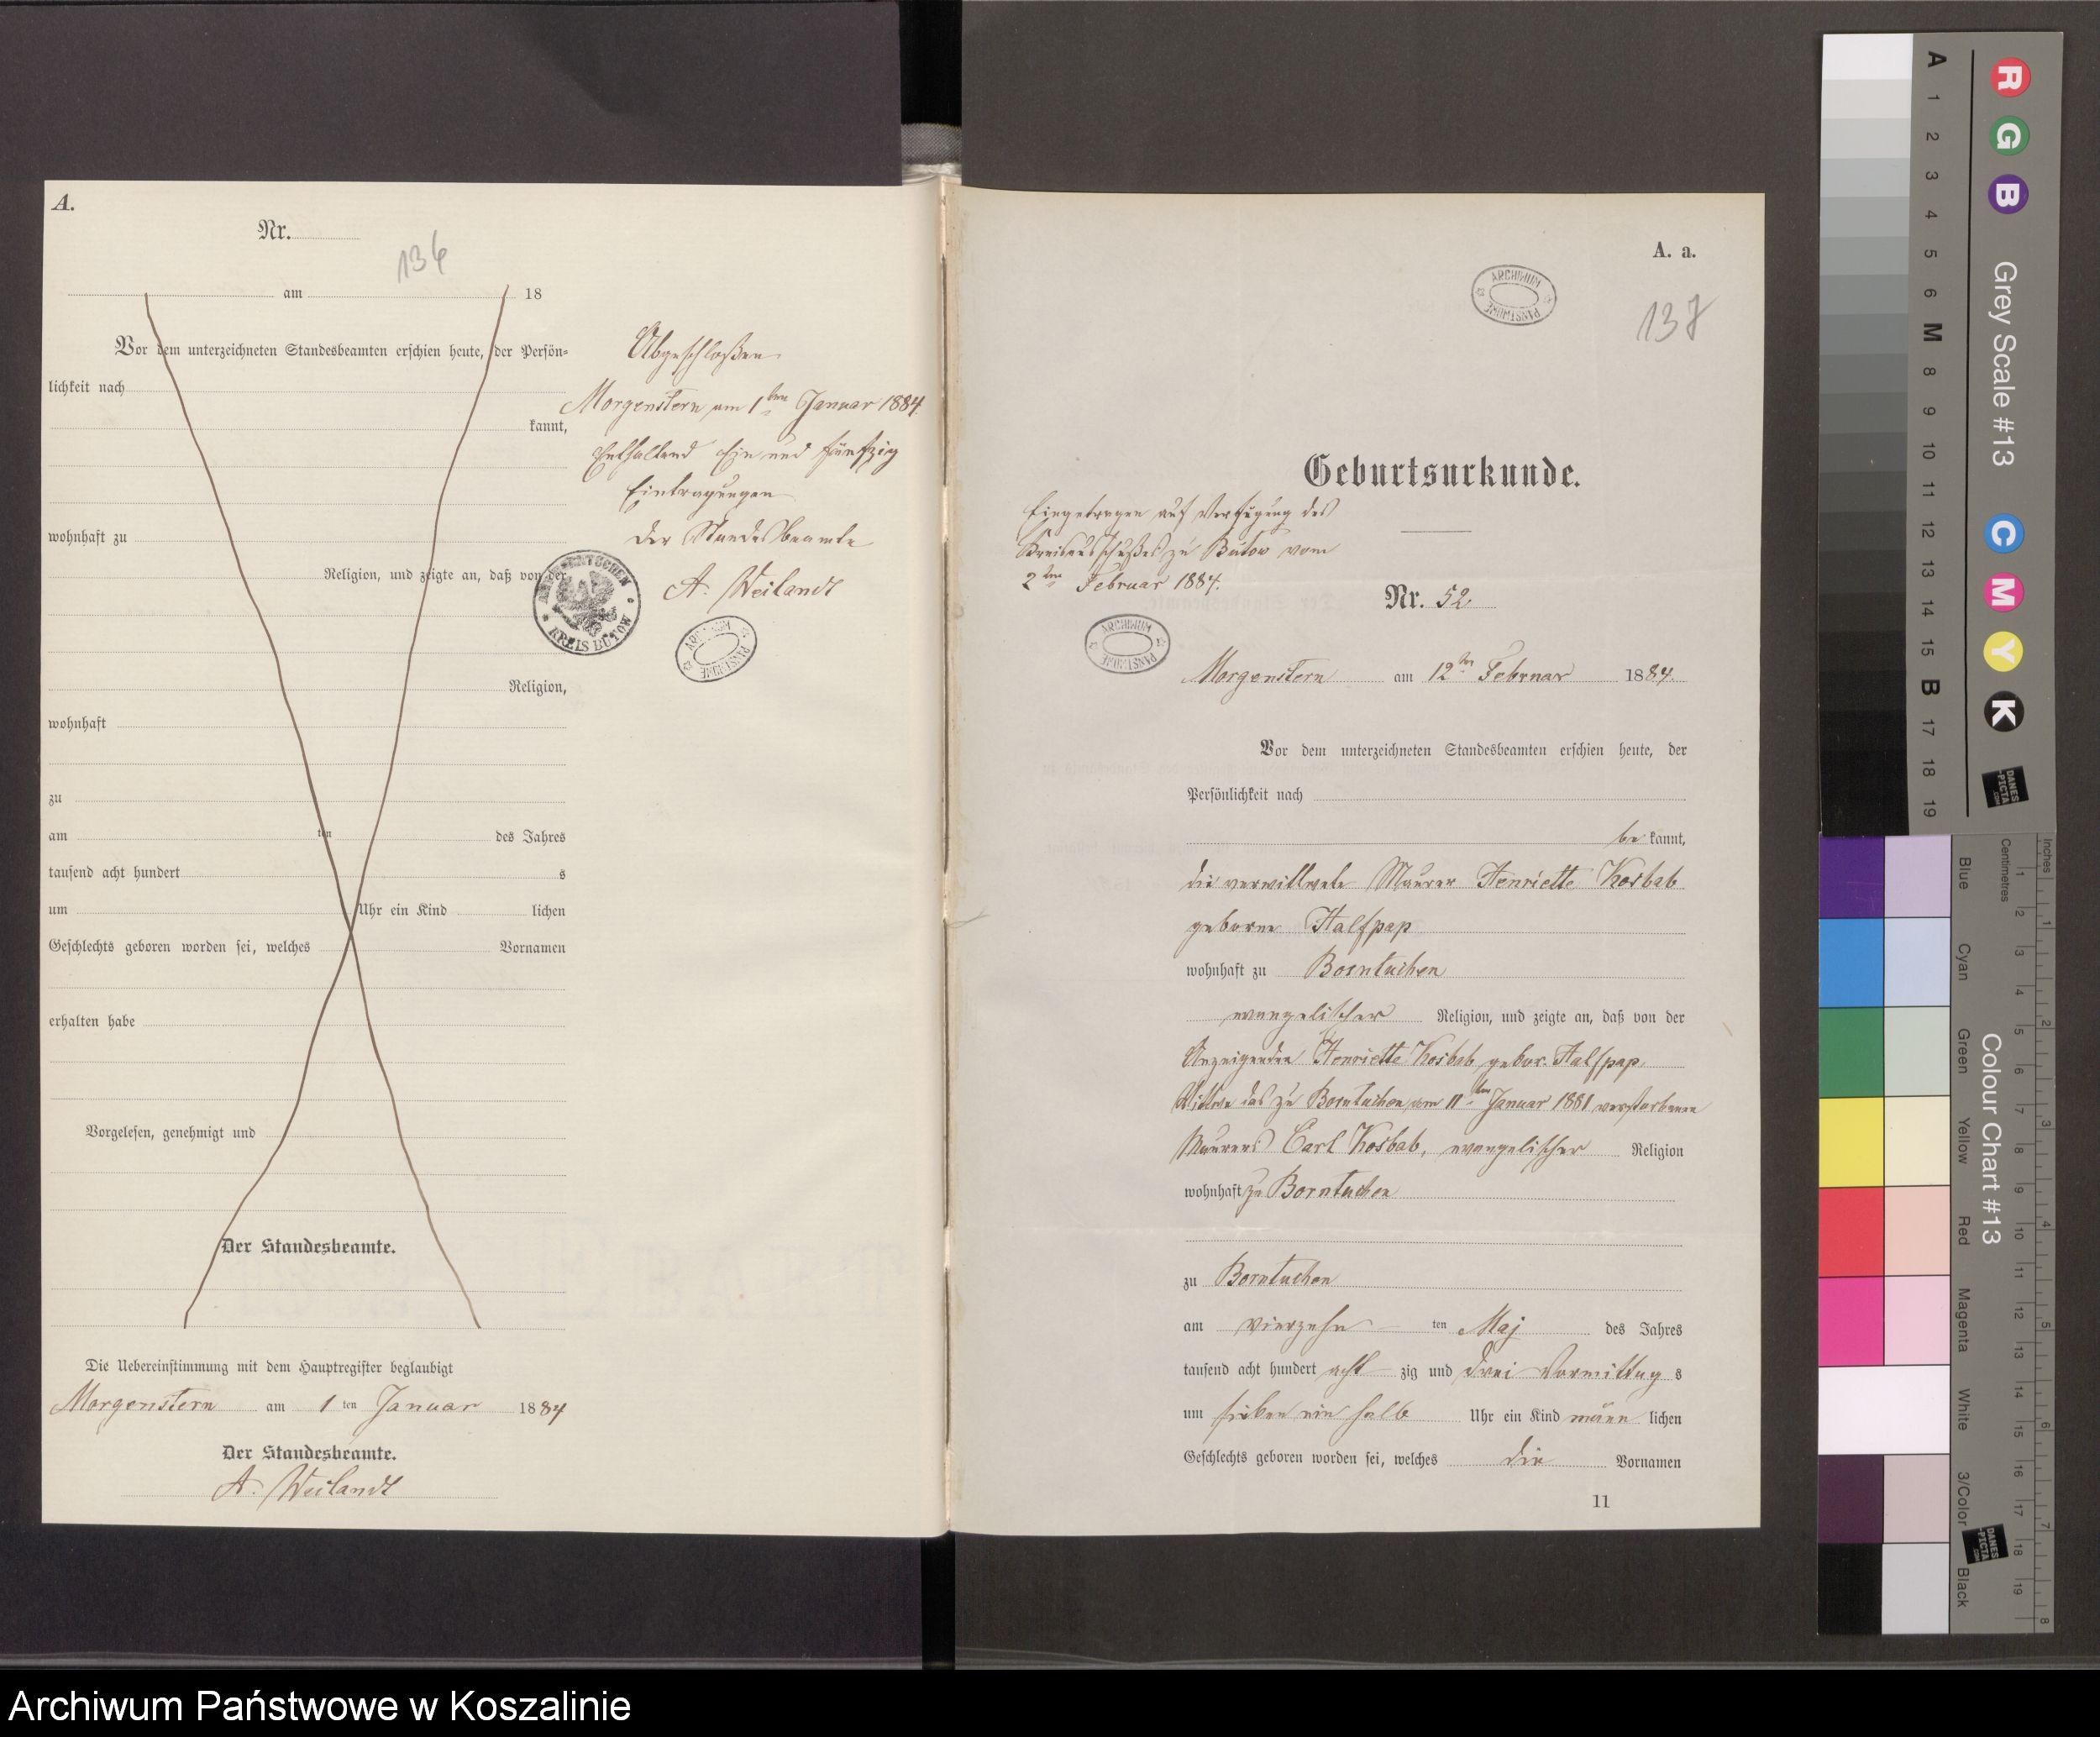 A.
Nr.
136
am 18
Vor dem unterzeichneten Standesbeamten erschien heute, der Persön-
lichkeit nach
kannt,
wohnhaft zu
Religion, und zeigte an, daß von der
Religion,
wohnhaft
zu
am ten des Jahres
tausend acht hundert s
um Uhr ein Kind lichen
Geschlechts geboren worden sei, welches Vornamen
erhalten habe
Vorgelesen, genehmigt und
Der Standesbeamte.
Die Uebereinstimmung mit dem Hauptregister beglaubigt
Morgenstern am 1 ten Januar 1884
Der Standesbeamte.
A. Weilandt
Abgeschloßen
Morgenstern am 1ten Januar 1884.
Enthaltend Ein und fünfzig
Eintragungen
Der Standesbeamte
A. Weilandt
KREIS BÜTOW
ARCHIWUM PAŃSTWOWE
A. a.
ARCHIWUM PAŃSTWOWE
137
Geburtsurkunde.
Eingetragen auf Verfügung des
Kreisausschußes zu Bütow vom
2ten Februar 1884.
ARCHIWUM PAŃSTWOWE
Nr. 52
Morgenstern am 12ten Februar 1884.
Vor dem unterzeichneten Standesbeamten erschien heute, der
Persönlichkeit nach
be kannt,
die verwittwete Maurer Henriette Kosbab
geborne Halfpap
wohnhaft zu Borntuchen
evangelischer Religion, und zeigte an, daß von der
Anzeigenden Henriette Kosbab gebor. Halfpap,
Wittwe des zu Borntuchen am 11ten Januar 1881 verstorbenen
Maurers Carl Kosbab, evangelischer Religion
wohnhaft zu Borntuchen
zu Borntuchen
am vierzehn ten Maj des Jahres
tausend acht hundert acht zig und drei Vormittag s
um sieben ein halb Uhr ein Kind männ lichen
Geschlechts geboren worden sei, welches die Vornamen
11
A 1 2 3 4 5 6 M 8 9 10 11 12 13 14 15 B 17 18 19
R G B Grey Scale #13 C M Y K
DANES PICTA .COM
Blue Cyan Green Yellow Red Magenta White 3/Color Black
Colour Chart #13
DANES PICTA .COM
Centimetres 1 2 3 4 5 6 7 8 9 10 11 12 13 14 15 16 17 18 19
Inches 1 2 3 4 5 6 7 8
Archiwum Państwowe w Koszalinie